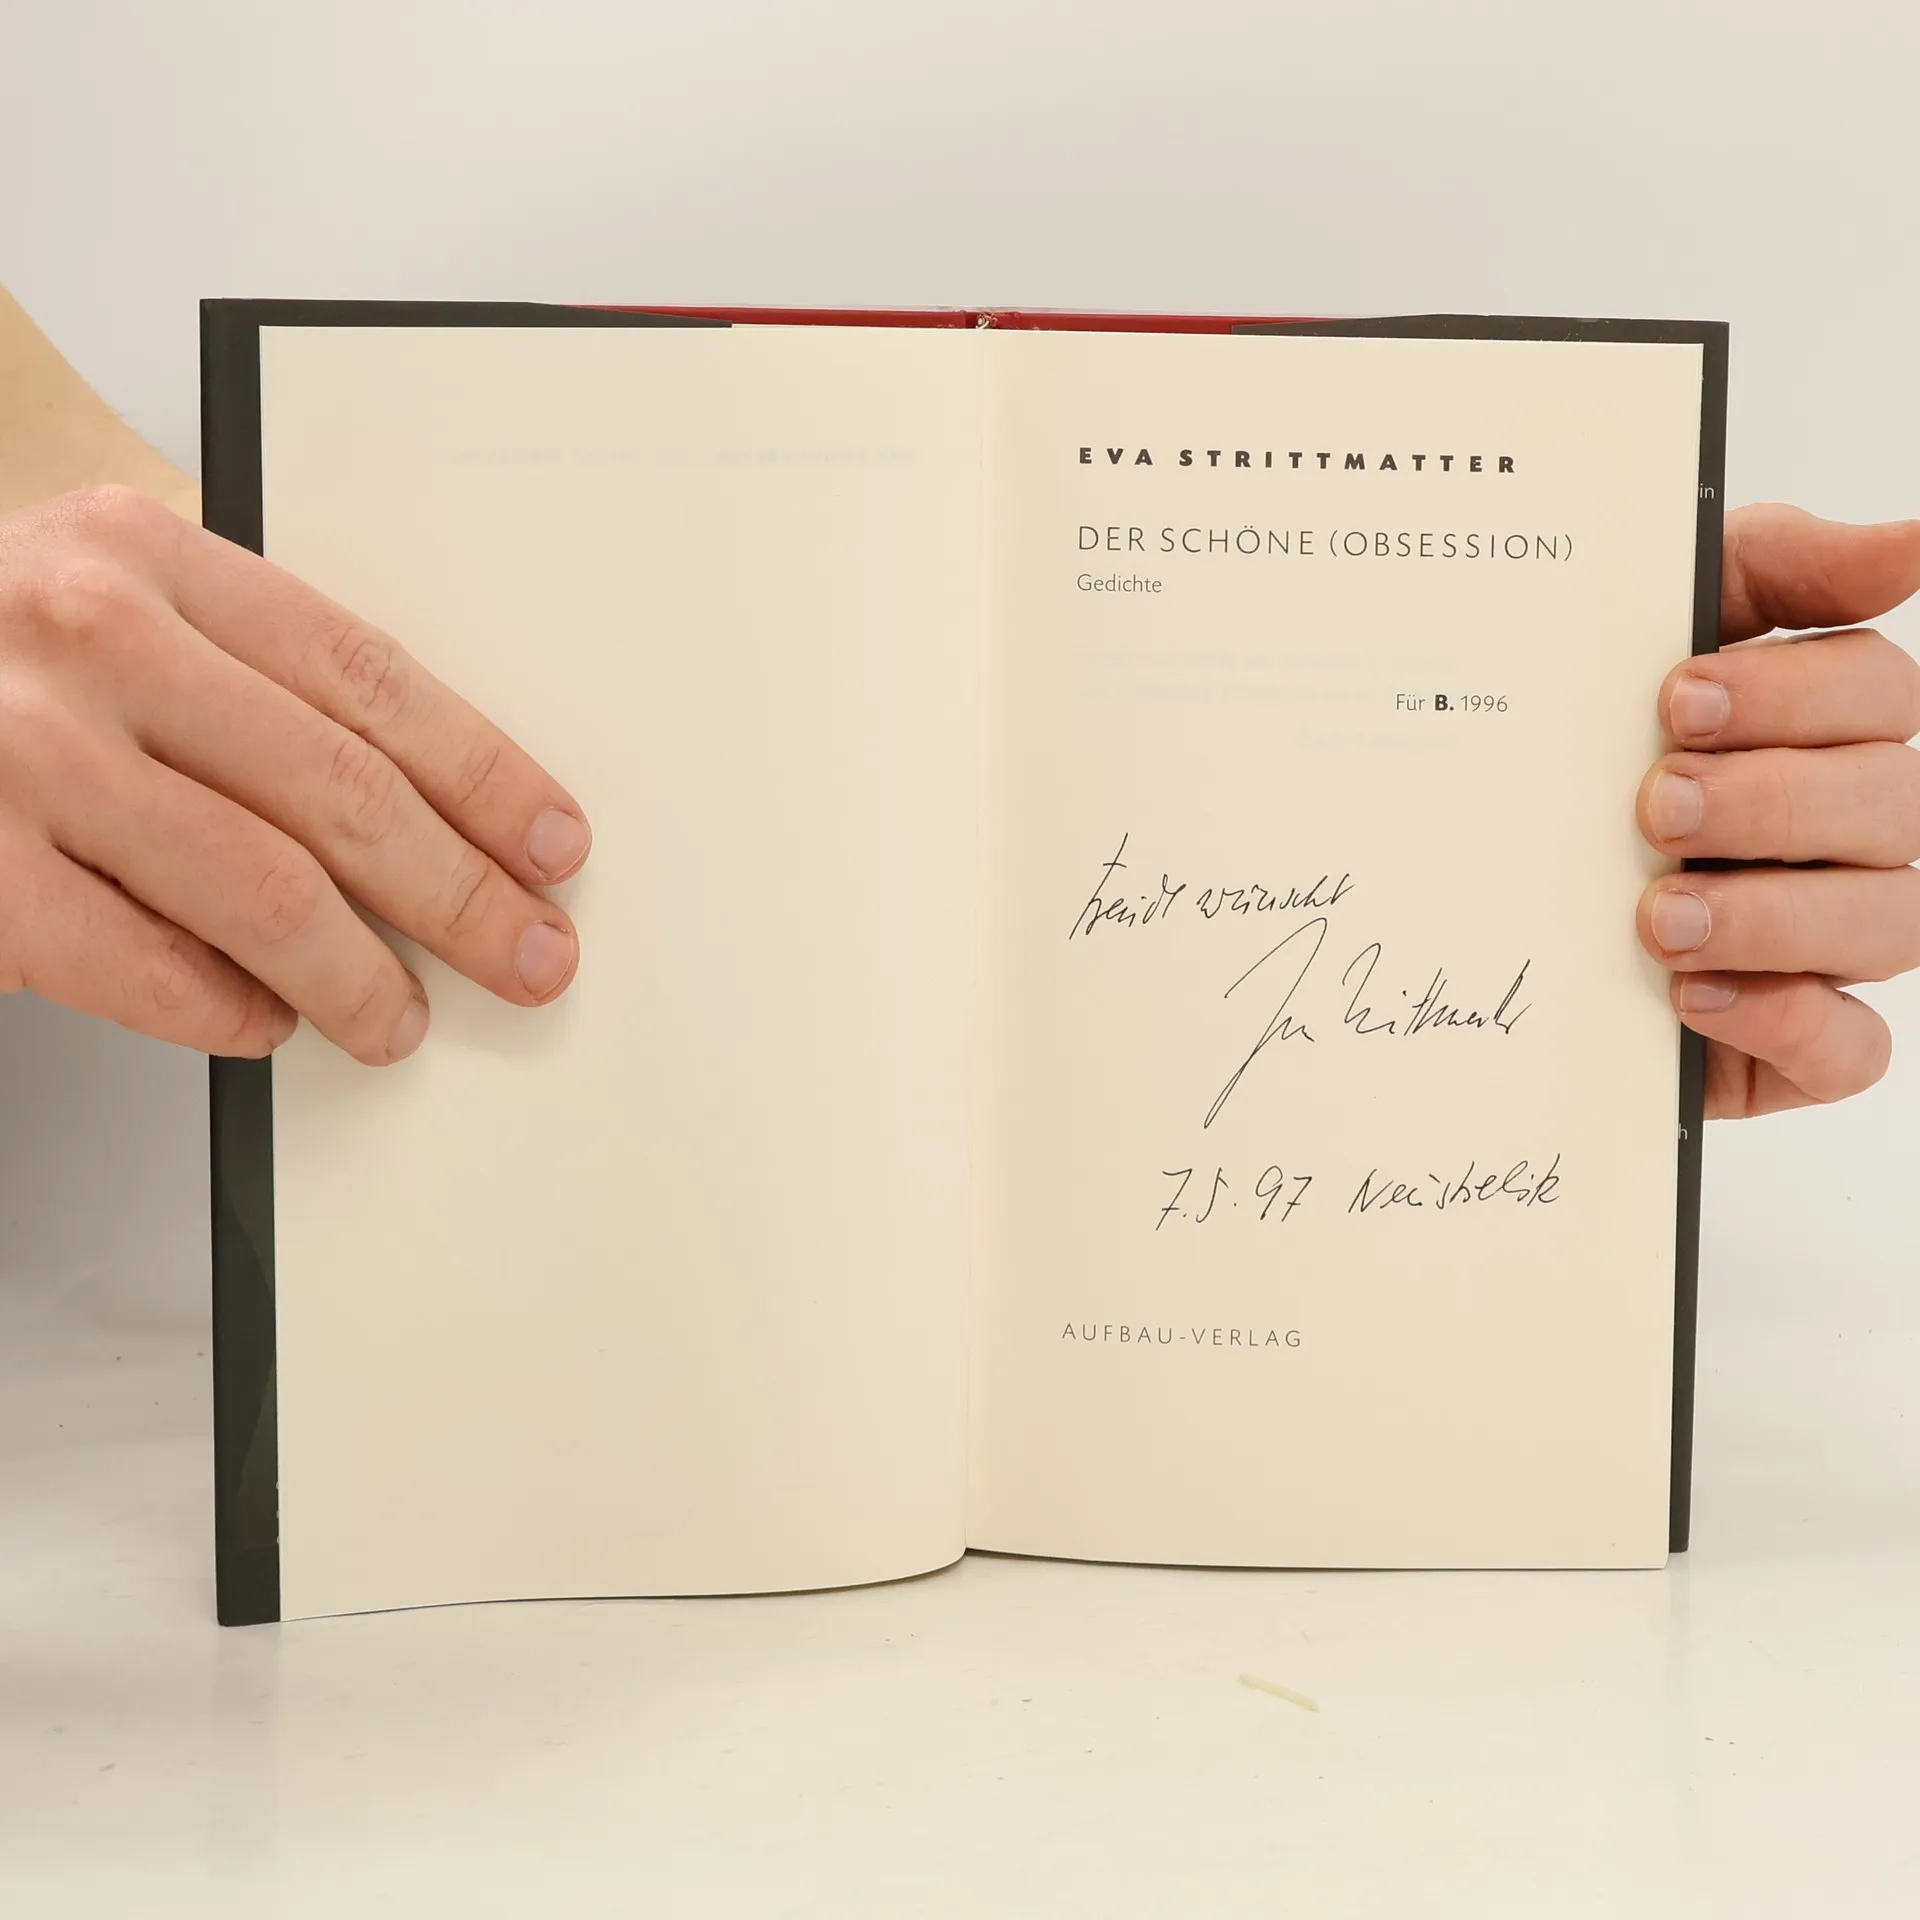 EVA STRITTMATTER
DER SCHÖNE (OBSESSION)
Gedichte
Für B. 1996
Freude wünscht
Eva Strittmatter
7.5.97 Neustrelitz
AUFBAU-VERLAG
in
h